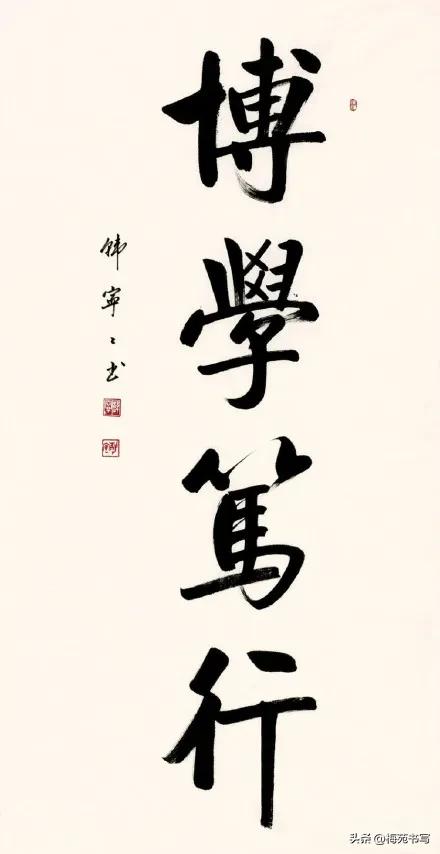 博學篤行
韓寧寧书
头条 @梅苑书写